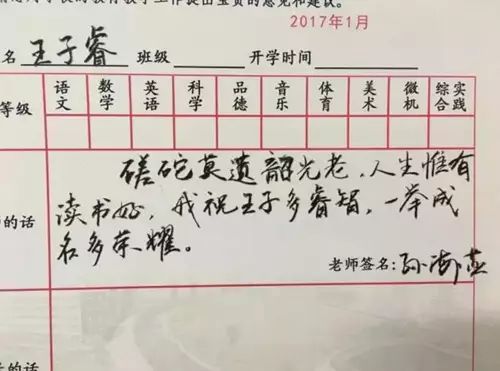 提出宝贵的意见和建议。
2017年1月
名 王子睿 班级 开学时间
等级 语文 数学 英语 科学 品德 音乐 体育 美术 微机 综合实践
的话
磋砣莫遗韶光老,人生惟有
读书好,我祝王子多睿智,一举成
名多荣耀。
老师签名:孙海燕
的话